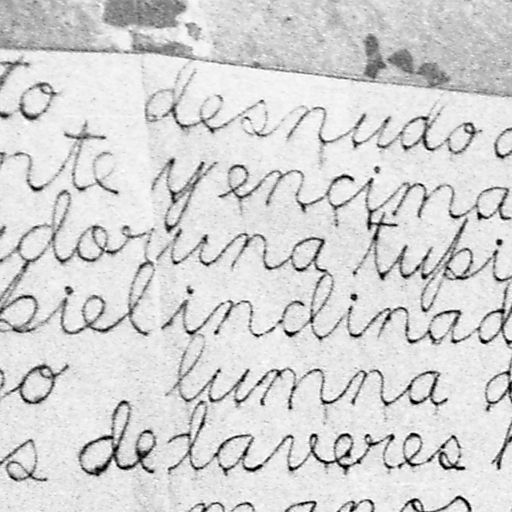 to desnudo
nte y encima
dor una tupi
piel indinad
o lumna d
s de laveres h
manos